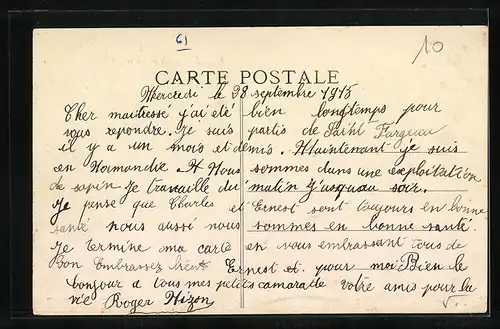 61
10
CARTE POSTALE
Mercredi le 28 septembre 1915
Cher maitresse j'ai été bien longtemps pour
vous repondre. Je suis partis de Saint Fargeau
il y a un mois et demis. Maintenant je suis
en Normandie. Nous sommes dans une exploitation
de sapin je travaille du matin jusquau soir.
Je pense que Charles et Ernest sont toujours en bonne
santé nous aussi nous sommes en bonne santé.
Je termine ma carte en vous embrassant tous de
Bon Embrassez bien Ernest et pour moi Bien le
bonjour a tous mes petits camarade votre amis pour la
vie Roger